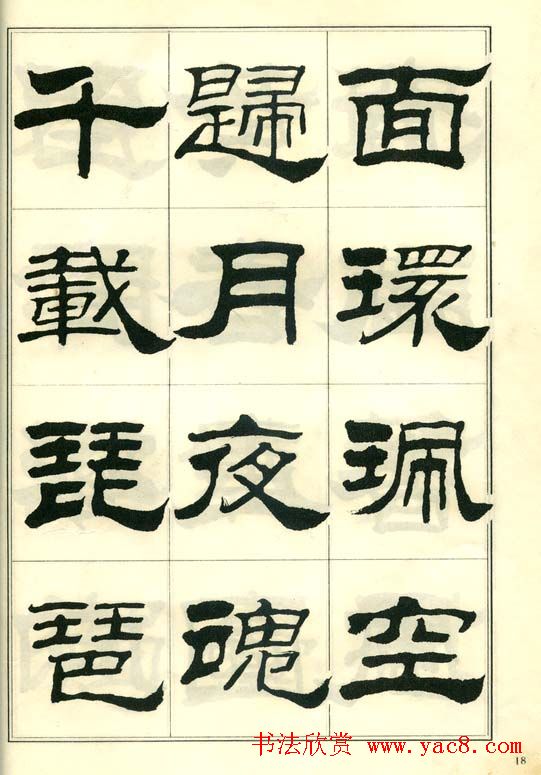 面環珮空
歸月夜魂
千載琵琶
书法欣赏 www.yac8.com
18